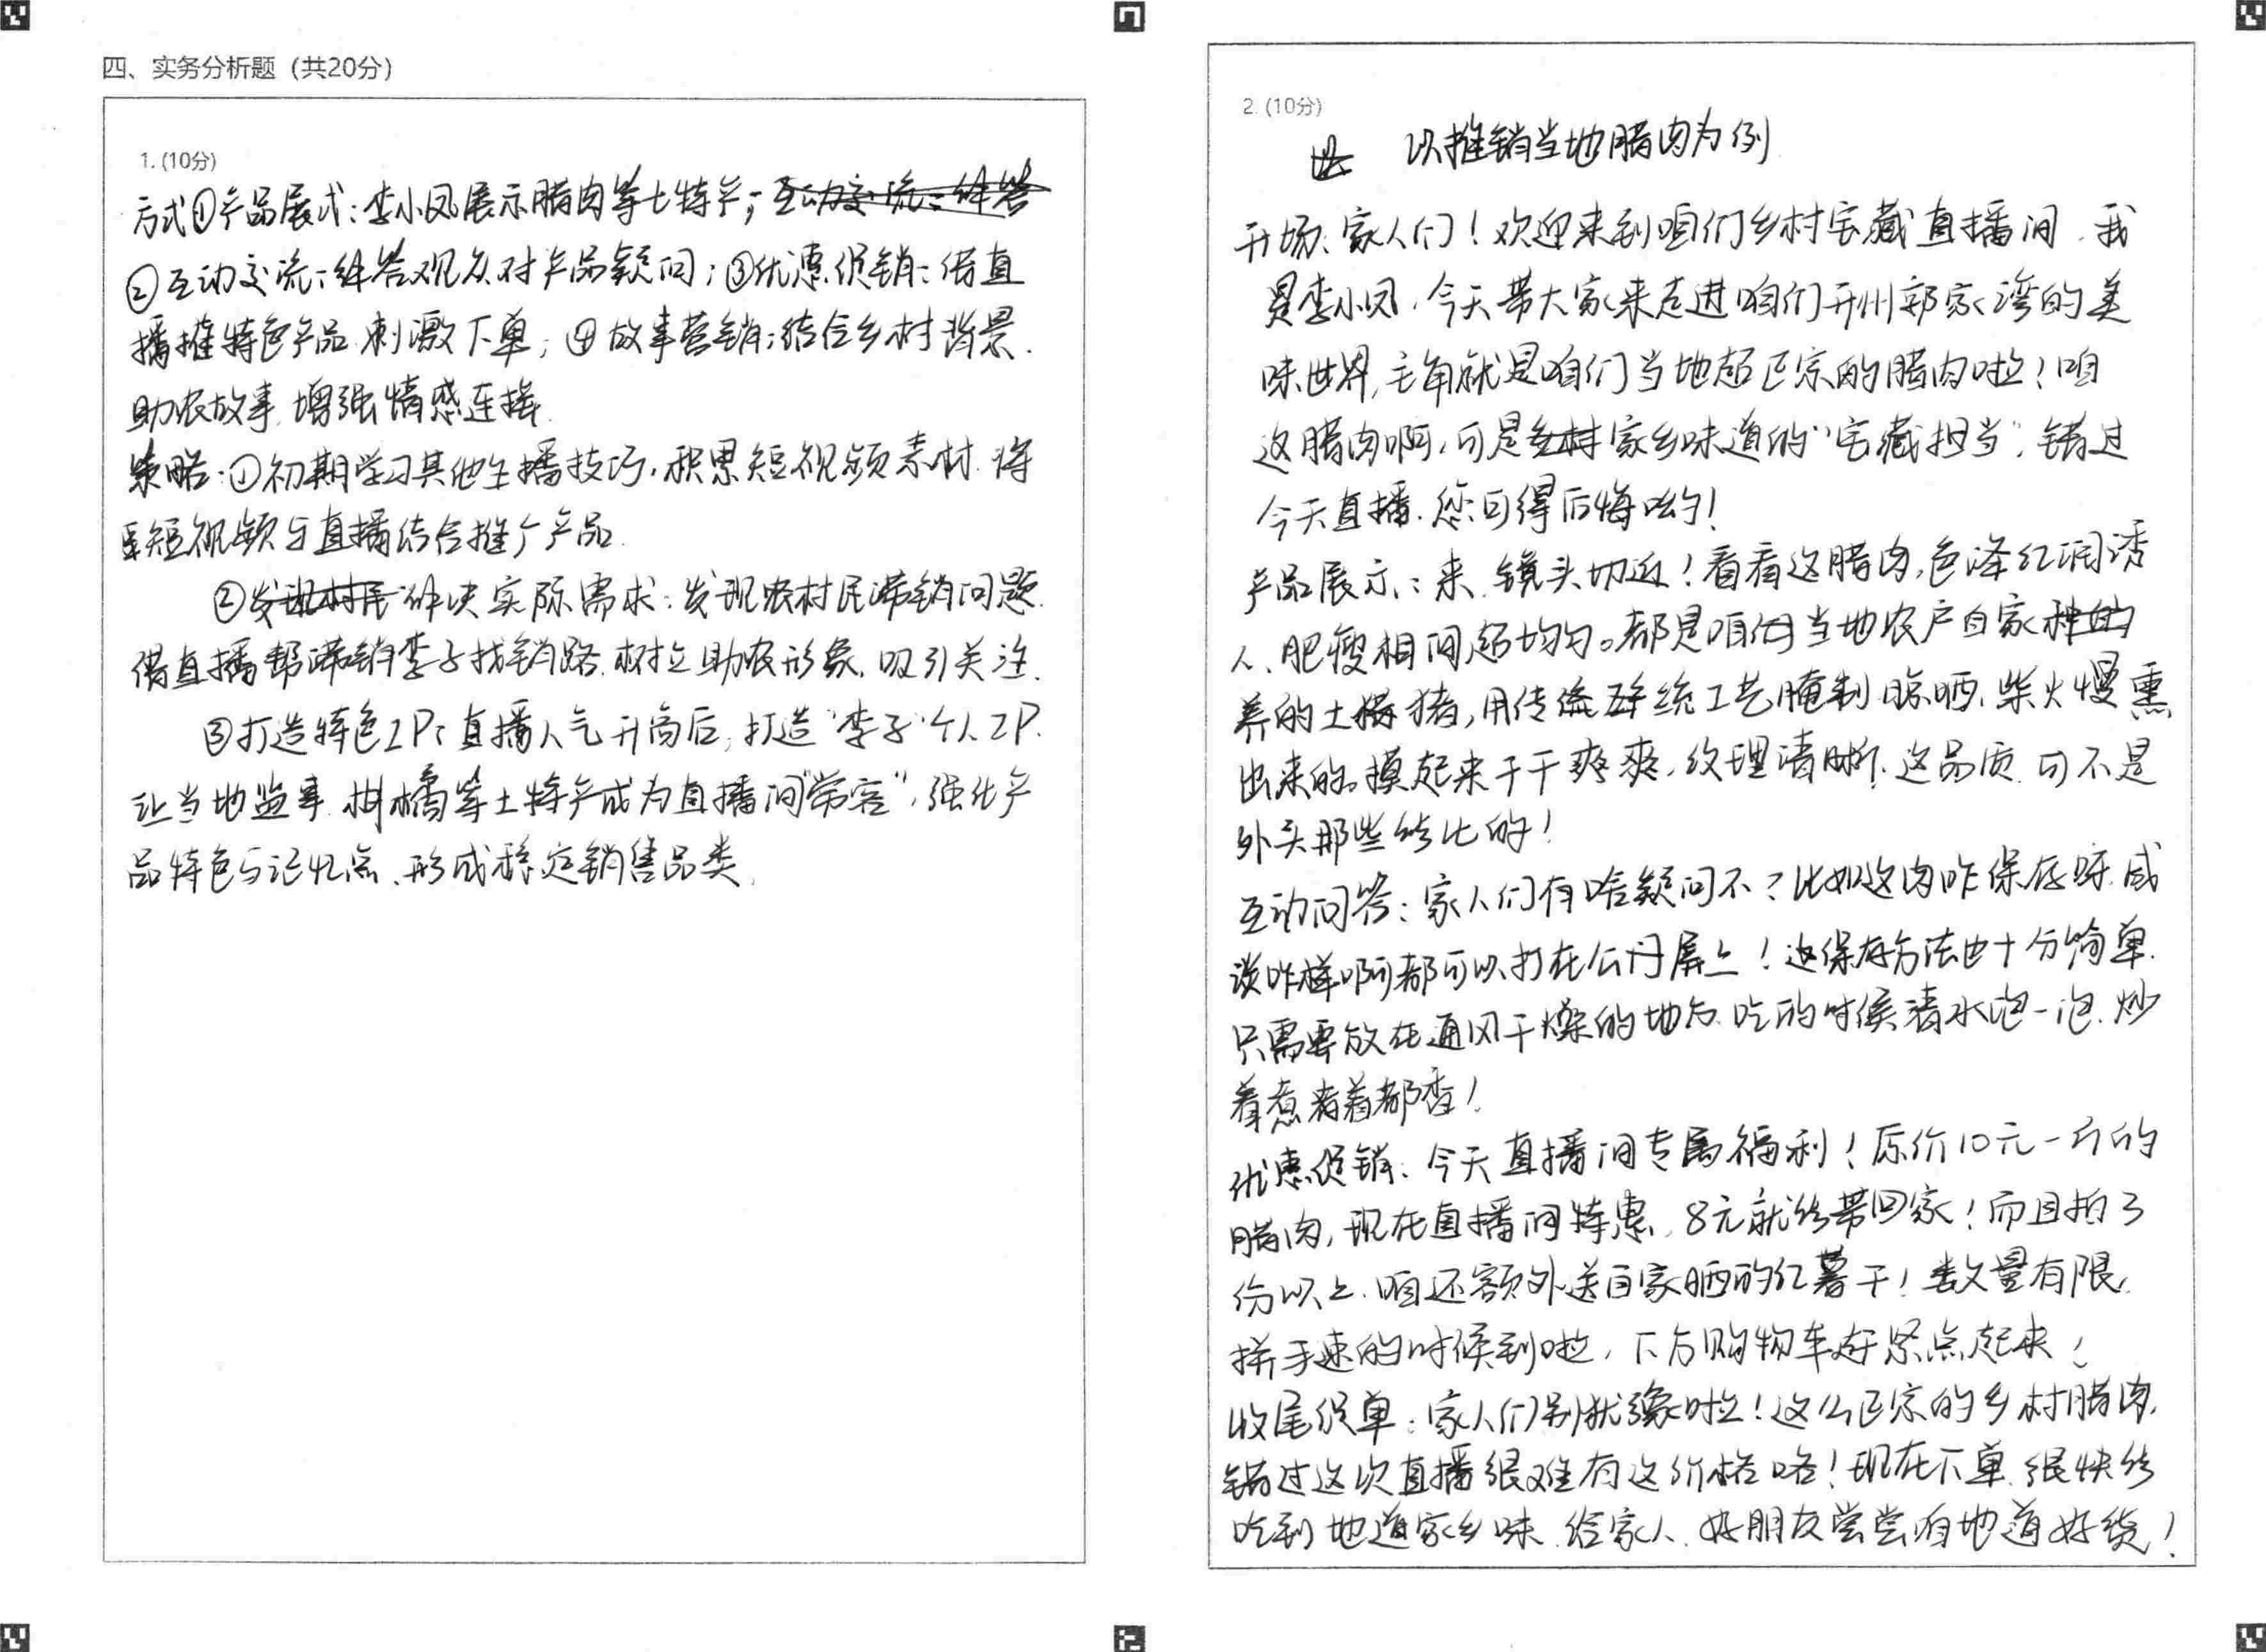 四、实务分析题（共20分）
1. (10分)
方式①产品展式：李小凤展示腊肉等土特产；互动交流：解答
②互动交流：解答观众对产品疑问；③优惠促销：借直
播推特色产品 刺激下单；④故事营销：结合乡村背景、
助农故事 增强情感连接
策略：①初期学习其他主播技巧，积累短视频素材 将
短视频与直播结合推广产品
②发现村民 解决实际需求：发现农村民滞销问题
借直播帮滞销李子找销路 树立助农形象，吸引关注、
③打造特色IP：直播人气升高后，打造"李子"个人IP、
让当地 柑橘等土特产成为直播间"常客"，强化产
品特色与记忆点、形成稳定销售品类、
2. (10分)
以推销当地腊肉为例
开场：家人们！欢迎来到咱们乡村宝藏直播间，我
是李小凤，今天带大家来走进咱们开州郭家湾的美
味世界，主角就是咱们当地超正宗的腊肉啦！咱
这腊肉啊，可是乡村家乡味道的"宝藏担当"，错过
今天直播，您可得后悔哟！
产品展示：来 镜头切近！看看这腊肉，色泽红润诱
人、肥瘦相间超均匀。都是咱们当地农户自家种的
养的土猪，用传统工艺腌制晾晒，柴火慢熏
出来的。摸起来干干爽爽，纹理清晰，这品质 可不是
外头那些能比的！
互动问答：家人们有啥疑问不？比如这肉咋保存呀 咸
淡咋样啊都可以打在公屏上！这保存方法也十分简单
只需要放在通风干燥的地方 吃的时候清水泡一泡 炒
着煮着都香！
优惠促销：今天直播间专属福利！原价10元一斤的
腊肉，现在直播间特惠，8元就能带回家！而且拍3
份以上 咱还额外送自家晒的红薯干！数量有限，
拼手速的时候到啦，下方购物车赶紧点起来！
收尾促单：家人们别犹豫啦！这么正宗的乡村腊肉，
错过这次直播很难有这价格咯！现在下单 很快能
吃到地道家乡味 给家人、好朋友尝尝咱地道好货！